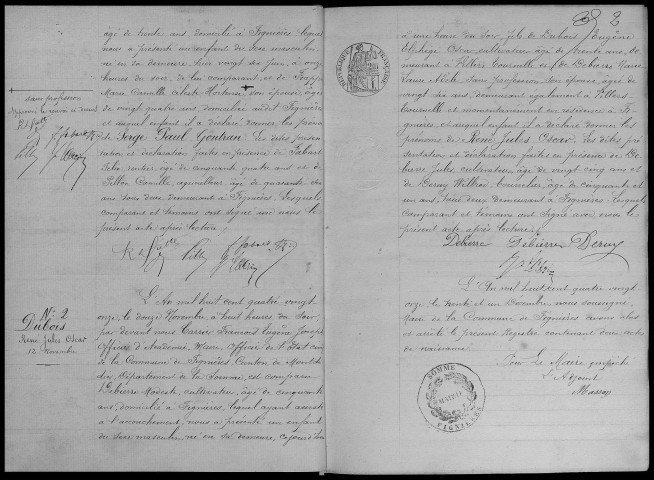 âgé de trente ans, domicilié à Fignières, lequel
nous a présenté un enfant du sexe masculin,
né en sa demeure, hier vingt six juin, à onze
heures du soir, de lui comparant, et de
Marie Camille Hortense, son épouse, âgée
de vingt quatre ans, domiciliée audit Fignières
et auquel enfant il a déclaré donner les prénoms
de Serge Paul Gontran. Les dites présen
tation et déclaration faites en présence de Tabart
rentier, âgé de cinquante quatre ans et de
Pillon Camille, agriculteur, âgé de quarante
ans tous deux demeurant à Fignières. Lesquels
comparant et témoins ont signé avec nous le
présent acte après lecture.
sans profession
N° 2
Dubois
René Jules Oscar
12 Novembre
L'An mil huit cent quatre-vingt
onze, le douze Novembre, à huit heures du soir,
par devant nous Carrier François Eugène Joseph
Officier d'Académie, Maire, Officier de l'Etat civil
de la Commune de Fignières, Canton de Montdi
dier, Département de la Somme, est comparu
Debierre Modeste, cultivateur, âgé de cinquante
ans, domicilié à Fignières, lequel ayant assisté
à l'accouchement, nous a présenté un enfant
du sexe masculin, né en sa demeure, aujourd'hui
2
RÉPUBLIQUE FRANÇAISE
à une heure du soir, fils de Dubois Eugène
Elphège Oscar, cultivateur, âgé de trente ans, de
meurant à Villers Tournelle et de Debierre Marie
Laure Adèle, sans profession, son épouse, âgée
de vingt six ans, demeurant également à Villers-
Tournelle et momentanément en résidence à Fi
gnières, et auquel enfant il a déclaré donner les
prénoms de René Jules Oscar. Les dites pré
sentation et déclaration faites en présence de De
bierre Jules, cultivateur, âgé de vingt cinq ans et
de Deruy Willbrod, tourneur, âgé de cinquante et
un ans, tous deux demeurant à Fignières. Lesquels
comparant et témoins ont signé avec nous le
présent acte après lecture.
Debierre Debierre Deruy
L'An mil huit cent quatre vingt
onze, le trente et un Décembre, nous soussigné,
Maire de la Commune de Fignières avons clos
et arrêté le présent Registre contenant deux actes
de naissance.
Pour Le Maire empêché
L'Adjoint
Masson
SOMME
MAIRIE
FIGNIERES